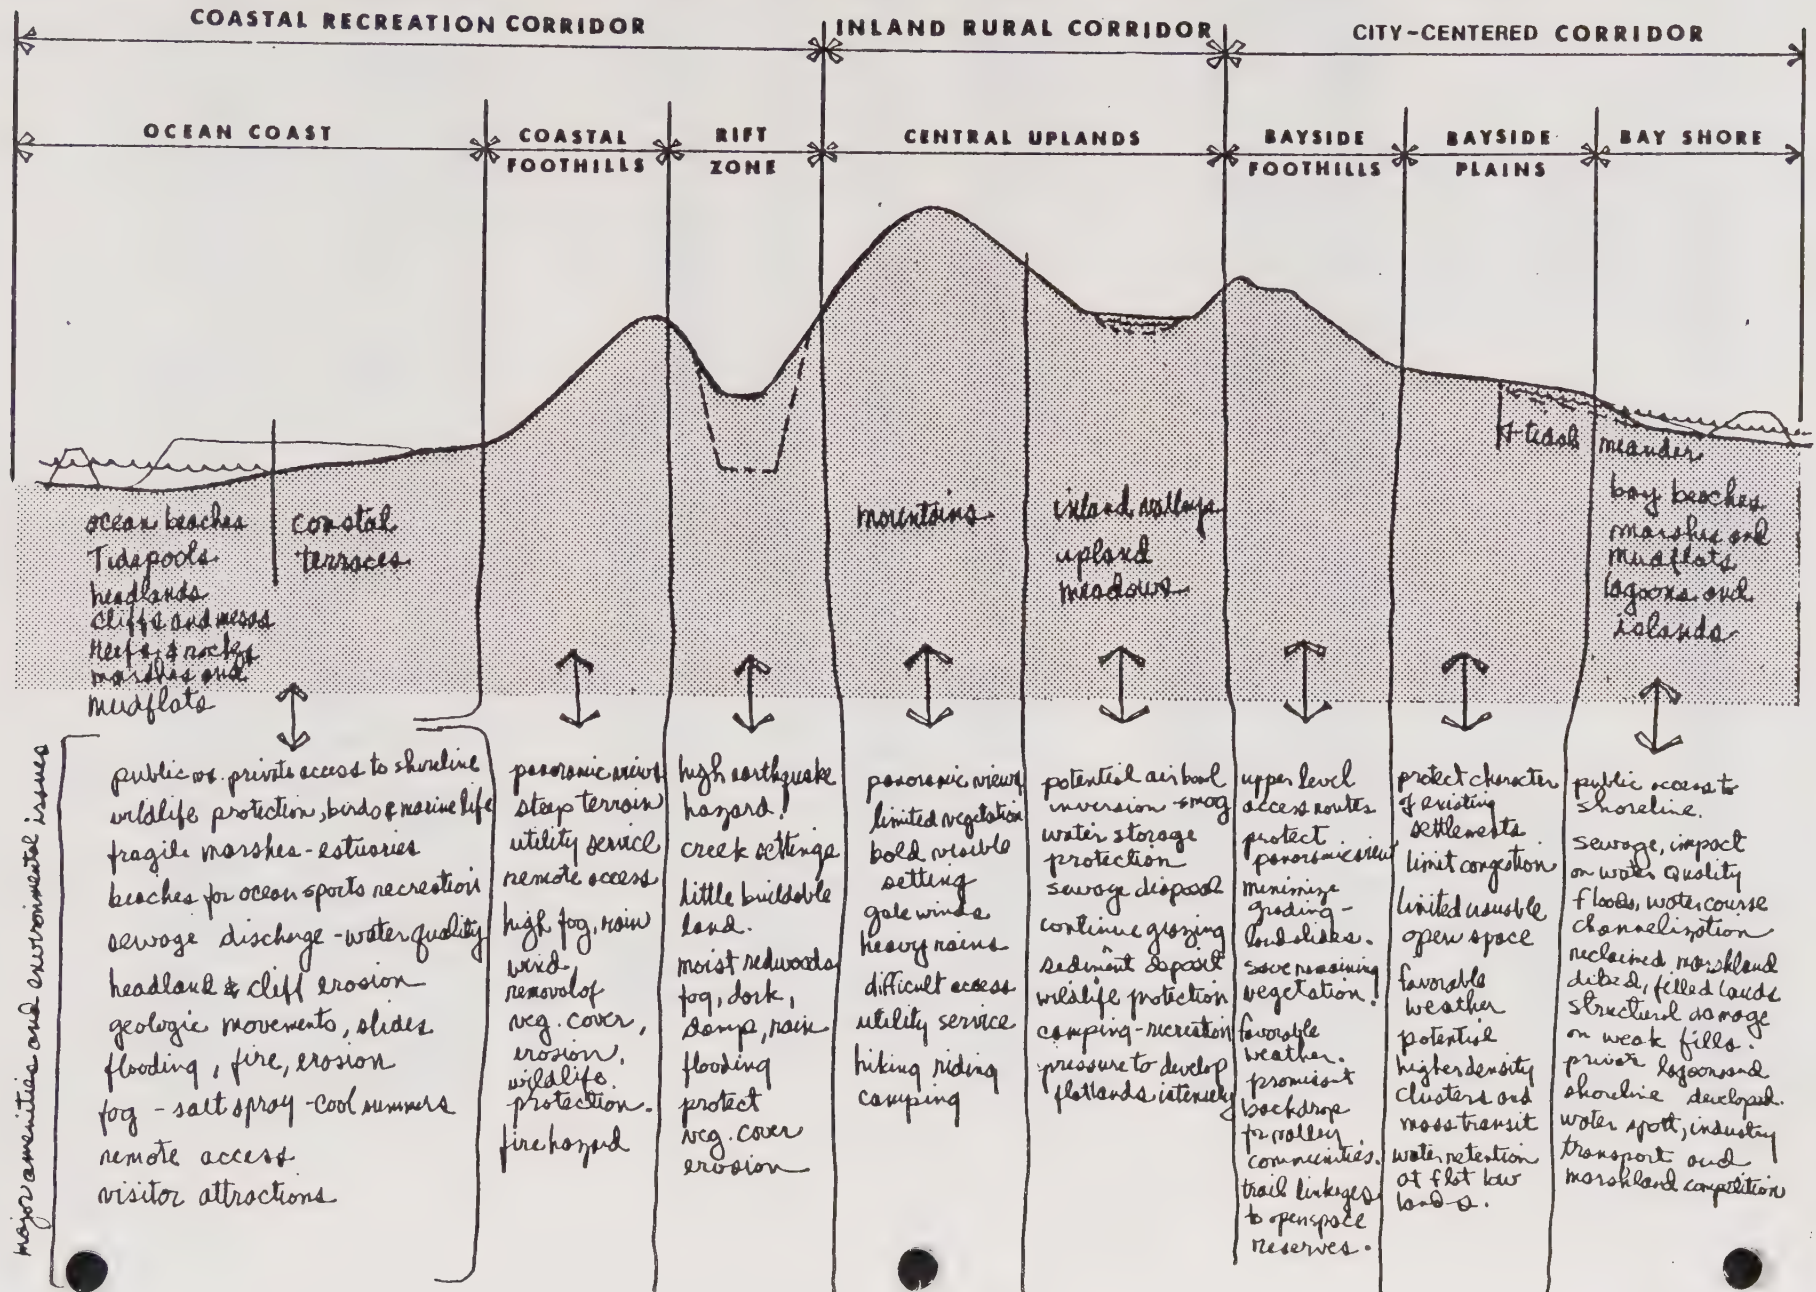 COASTAL RECREATION CORRIDOR
INLAND RURAL CORRIDOR
CITY-CENTERED CORRIDOR
OCEAN COAST
COASTAL
FOOTHILLS
RIFT
ZONE
CENTRAL UPLANDS
BAYSIDE
FOOTHILLS
BAYSIDE
PLAINS
BAY SHORE
tidal meander
ocean beaches
Tidepools
headlands
cliffs and mesas
reefs & rocks
marshes and
mudflats
coastal
terraces
mountains
inland valleys
upland
meadows
bay beaches
marshes and
mudflats
lagoons and
islands
major amenities and environmental issues
public vs. private access to shoreline
wildlife protection, birds & marine life
fragile marshes - estuaries
beaches for ocean sports recreation
sewage discharge - water quality
headland & cliff erosion
geologic movements, slides
flooding, fire, erosion
fog - salt spray - cool summers
remote access
visitor attractions
panoramic views
steep terrain
utility service
remote access
high fog, rain
wind
removal of
veg. cover,
erosion,
wildlife
protection.
fire hazard
high earthquake
hazard!
creek settings
little buildable
land.
moist redwoods
fog, dark,
damp, rain
flooding
protect
veg. cover
erosion
panoramic views
limited vegetation
bold visible
setting
gale winds
heavy rains
difficult access
utility service
hiking riding
camping
potential air bowl
inversion - smog
water storage
protection
sewage disposal
continue grazing
sediment deposit
wildlife protection
camping - recreation
pressure to develop
flatlands intensely
upper level
access routes
protect
panoramic view
minimize
grading -
landslides.
save remaining
vegetation!
favorable
weather.
prominent
backdrop
for valley
communities.
trail linkages
to openspace
reserves.
protect character
of existing
settlements
limit congestion
limited usuable
open space
favorable
weather
potential
higher density
clusters and
mass transit
water retention
at flat low
lands.
public access to
shoreline.
sewage, impact
on water quality
floods, watercourse
channelization
reclaimed marshland
diked, filled lands
structural damage
on weak fills.
lagoons and
shoreline developed.
water sport, industry
transport and
marshland competition